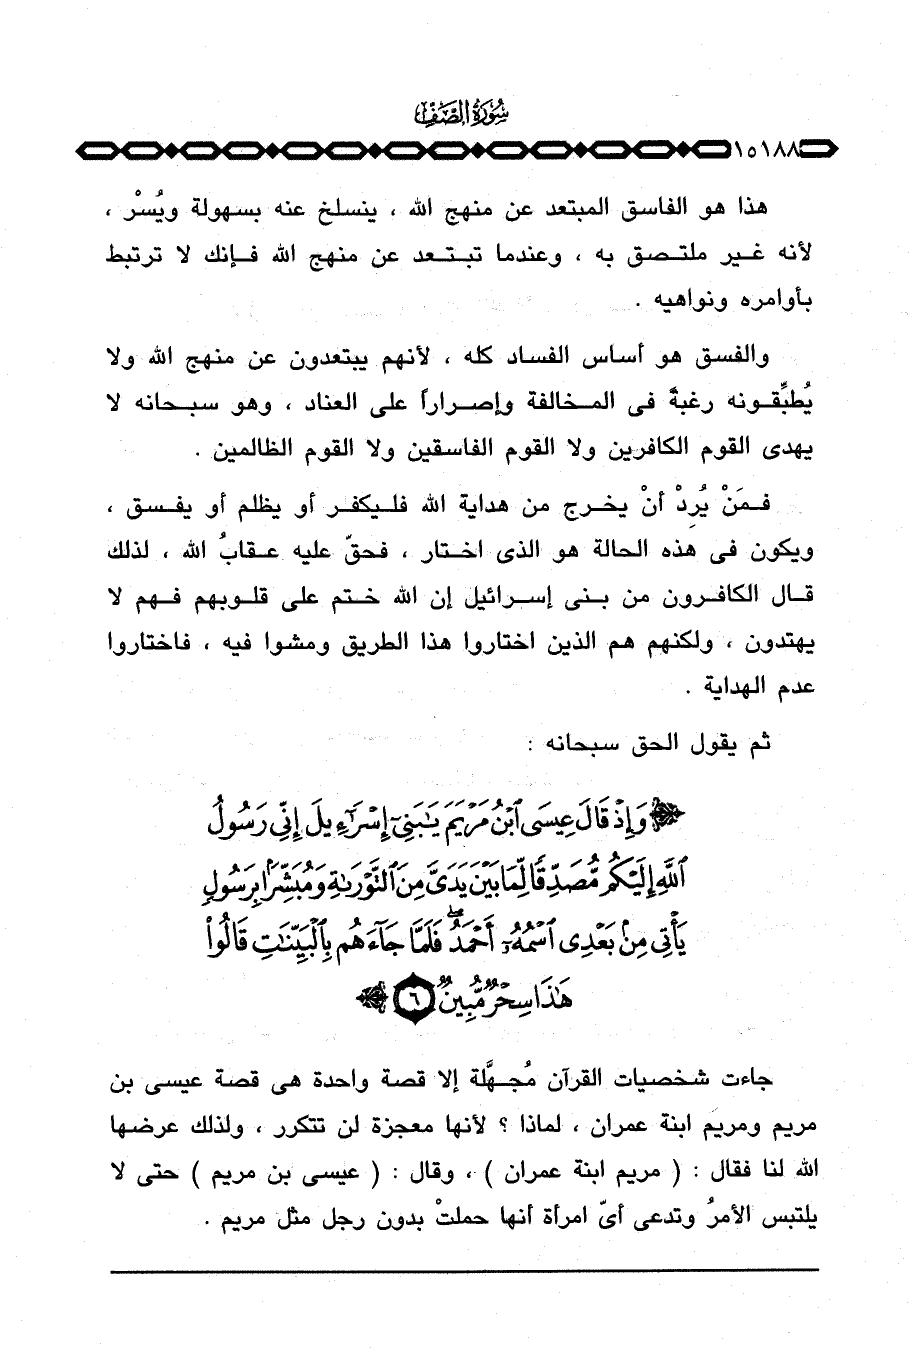 سُورَةُ الصَّفِّ
١٥١٨٨
هذا هو الفاسق المبتعد عن منهج الله ، ينسلخ عنه بسهولة ويُسْر ،
لأنه غير ملتصق به ، وعندما تبتعد عن منهج الله فإنك لا ترتبط
بأوامره ونواهيه .
والفسق هو أساس الفساد كله ، لأنهم يبتعدون عن منهج الله ولا
يُطبِّقونه رغبةً فى المخالفة وإصراراً على العناد ، وهو سبحانه لا
يهدى القوم الكافرين ولا القوم الفاسقين ولا القوم الظالمين .
فمَنْ يُرِدْ أنْ يخرج من هداية الله فليكفر أو يظلم أو يفسق ،
ويكون فى هذه الحالة هو الذى اختار ، فحقّ عليه عقابُ الله ، لذلك
قال الكافرون من بنى إسرائيل إن الله ختم على قلوبهم فهم لا
يهتدون ، ولكنهم هم الذين اختاروا هذا الطريق ومشوا فيه ، فاختاروا
عدم الهداية .
ثم يقول الحق سبحانه :
وَإِذْ قَالَ عِيسَى ٱبْنُ مَرْيَمَ يَٰبَنِىٓ إِسْرَٰٓءِيلَ إِنِّى رَسُولُ
ٱللَّهِ إِلَيْكُم مُّصَدِّقًا لِّمَا بَيْنَ يَدَىَّ مِنَ ٱلتَّوْرَىٰةِ وَمُبَشِّرًۢا بِرَسُولٍ
يَأْتِى مِنۢ بَعْدِى ٱسْمُهُۥٓ أَحْمَدُ ۖ فَلَمَّا جَآءَهُم بِٱلْبَيِّنَٰتِ قَالُوا۟
هَٰذَا سِحْرٌ مُّبِينٌ ٦
جاءت شخصيات القرآن مُجهَّلة إلا قصة واحدة هى قصة عيسى بن
مريم ومريم ابنة عمران ، لماذا ؟ لأنها معجزة لن تتكرر ، ولذلك عرضها
الله لنا فقال : ( مريم ابنة عمران ) ، وقال : ( عيسى بن مريم ) حتى لا
يلتبس الأمرُ وتدعى أىّ امرأة أنها حملتْ بدون رجل مثل مريم .